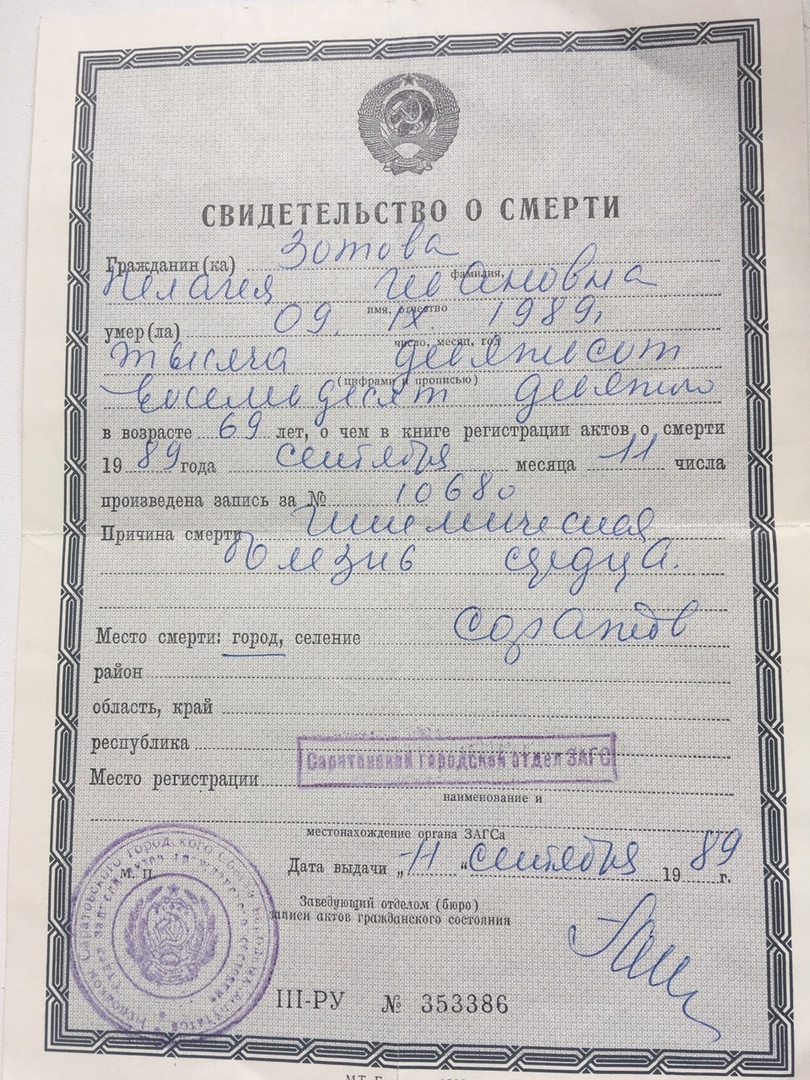 СВИДЕТЕЛЬСТВО О СМЕРТИ
Гражданин(ка) Зотова
фамилия,
Пелагея Ивановна
имя, отчество
умер(ла) 09. IX. 1989г.
число, месяц, год
тысяча девятисот
(цифрами и прописью)
восемьдесят девятого
в возрасте 69 лет, о чем в книге регистрации актов о смерти
1989 года сентября месяца 11 числа
произведена запись за № 10680
Причина смерти Ишемическая
болезнь сердца.
Место смерти: город, селение Саратов
район
область, край
республика
Место регистрации Саратовский городской отдел ЗАГС
наименование и
местонахождение органа ЗАГСа
Дата выдачи „11“ сентября 1989 г.
М. П.
Заведующий отделом (бюро)
записи актов гражданского состояния
III-РУ № 353386